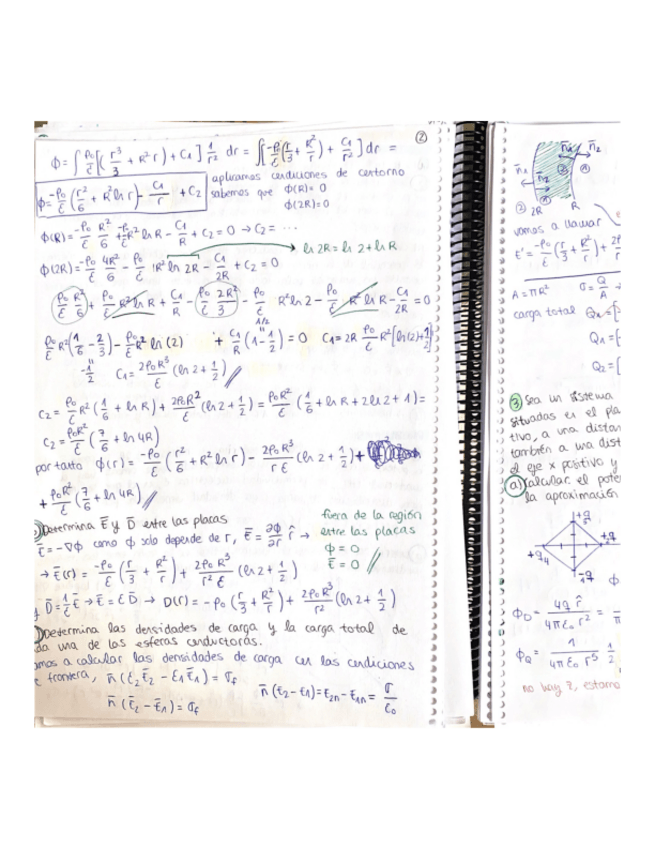 ②
ϕ = ∫ ρ₀/ε [( r³/3 + R² r ) + C₁ ] 1/r² dr = ∫[ -ρ₀/ε ( r/3 + R²/r ) + C₁/r² ] dr =
ϕ = -ρ₀/ε ( r²/6 + R² ln r ) - C₁/r + C₂
aplicamos condiciones de contorno
sabemos que ϕ(R) = 0
ϕ(2R) = 0
ϕ(R) = -ρ₀/ε R²/6 - ρ₀/ε R² ln R - C₁/R + C₂ = 0 → C₂ = ...
ln 2R = ln 2 + ln R
ϕ(2R) = -ρ₀/ε 4R²/6 - ρ₀/ε R² ln 2R - C₁/2R + C₂ = 0
ρ₀/ε R²/6 + ρ₀/ε R² ln R + C₁/R - ρ₀/ε 2R²/3 - ρ₀/ε R² ln 2 - ρ₀/ε R² ln R - C₁/2R = 0
1/2
ρ₀/ε R² ( 1/6 - 2/3 ) - ρ₀/ε R² ln (2) + C₁/R ( 1 - 1/2 ) = 0 C₁ = 2R ρ₀/ε R² [ ln(2) + 1/2 ]
-1/2 C₁ = 2ρ₀R³/ε ( ln 2 + 1/2 )
C₂ = ρ₀/ε R² ( 1/6 + ln R ) + 2ρ₀R²/ε ( ln 2 + 1/2 ) = ρ₀R²/ε ( 1/6 + ln R + 2 ln 2 + 1 ) =
C₂ = ρ₀R²/ε ( 7/6 + ln 4R )
por tanto ϕ(r) = -ρ₀/ε ( r²/6 + R² ln r ) - 2ρ₀R³/rε ( ln 2 + 1/2 ) +
+ ρ₀R²/ε ( 7/6 + ln 4R )
Determina E̅ y D̅ entre las placas
E̅ = -∇ϕ como ϕ solo depende de r, E̅ = ∂ϕ/∂r r̂ →
fuera de la región
entre las placas
ϕ = 0
E̅ = 0
→ E̅(r) = -ρ₀/ε ( r/3 + R²/r ) + 2ρ₀R³/r²ε ( ln 2 + 1/2 )
y D̅ = 1/ε E̅ → E̅ = ε D̅ → D(r) = -ρ₀ ( r/3 + R²/r ) + 2ρ₀R³/r² ( ln 2 + 1/2 )
Determina las densidades de carga y la carga total de
da una de las esferas conductoras.
amos a calcular las densidades de carga con las condiciones
e frontera, n̅ (ε₂E̅₂ - ε₁E̅₁) = σf
n̅ (E̅₂ - E̅₁) = σf
n̅ (E₂ - E₁) = E₂n - E₁n = σ/ε₀
n̅₁ n̅₂
n̅₁ n̅₂
② 2R R
vamos a llamar
E' = -ρ₀/ε ( r/3 + R²/r ) + 2ρ
A = πR² σ = Q/A →
carga total
Q₁ = [
Q₂ = [
③ Sea un sistema
situadas en el pla
tivo, a una distan
también a una dist
el eje x positivo y
a) Calcular el pote
la aproximación
+q
+q₄
+q₂
ϕ
ϕD = 4q r̂/4πε₀ r² =
ϕQ = 1/4πε₀ r⁵ 1/2
no way?, estamo